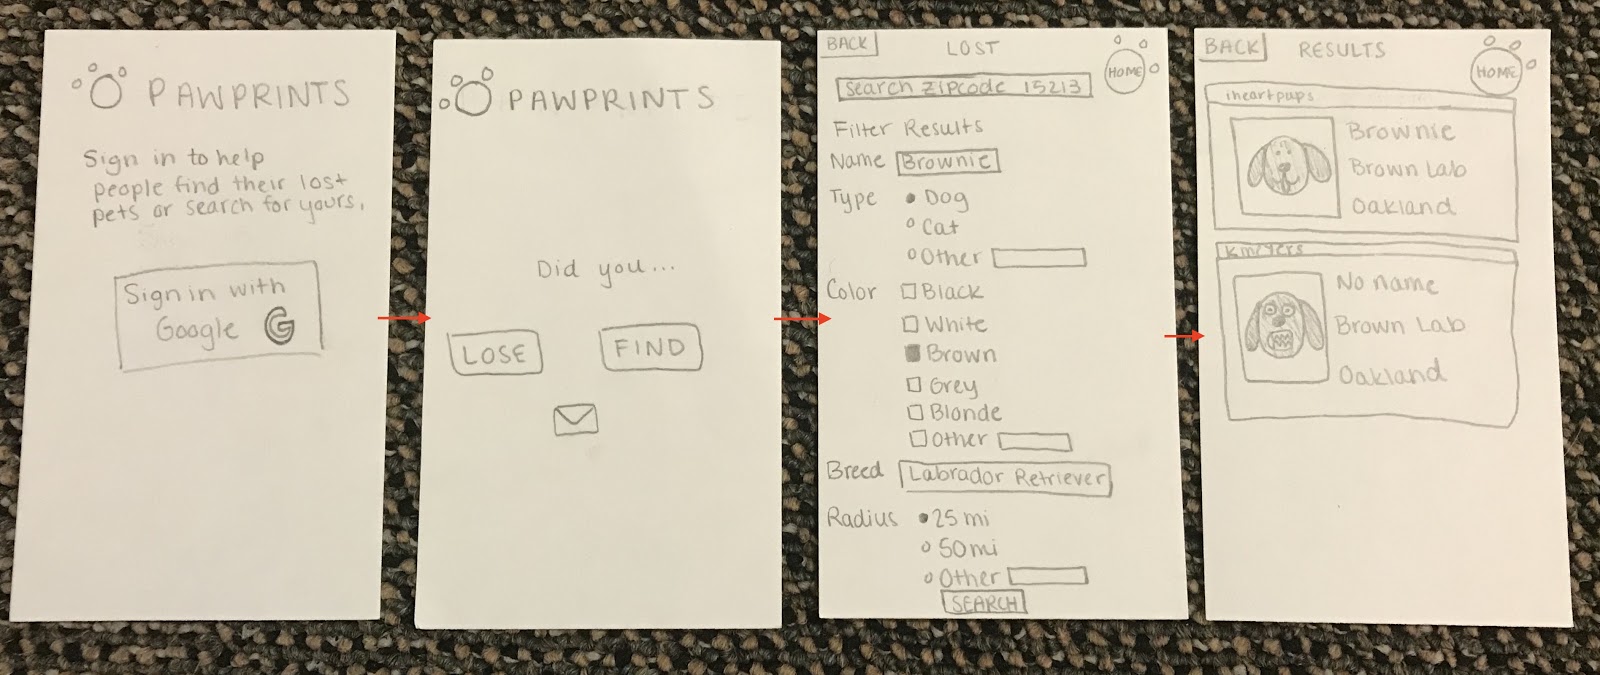 PAWPRINTS
Sign in to help
people find their lost
pets or search for yours.
Sign in with
Google G
PAWPRINTS
Did you...
LOSE
FIND
BACK
LOST
HOME
Search Zipcode 15213
Filter Results
Name Brownie
Type Dog
Cat
Other
Color Black
White
Brown
Grey
Blonde
Other
Breed Labrador Retriever
Radius 25 mi
50 mi
Other
SEARCH
BACK
RESULTS
HOME
iheartpups
Brownie
Brown Lab
Oakland
kmeyers
No name
Brown Lab
Oakland